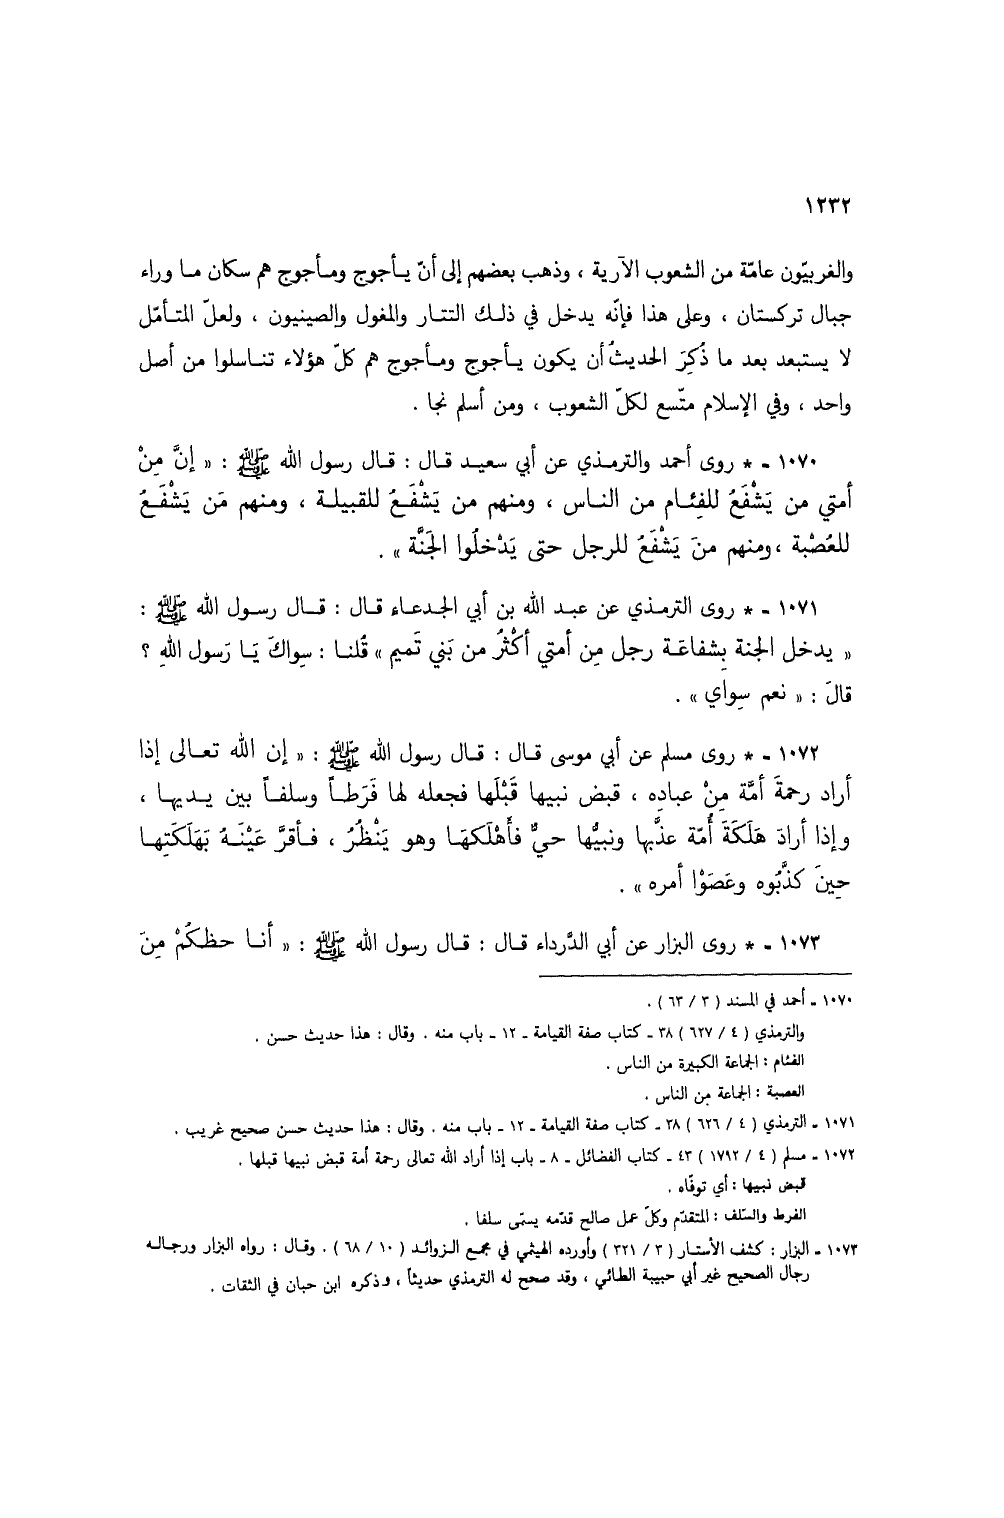 ١٢٣٢
والغربيّون عامّة من الشعوب الآرية ، وذهب بعضهم إلى أنّ يـأجوج ومـأجوج هم سكان مـا وراء
جبال تركستان ، وعلى هذا فإنّه يدخل في ذلـك التتـار والمغول والصينيون ، ولعلّ المتـأمّل
لا يستبعد بعد ما ذُكِرَ الحديثُ أن يكون يـأجوج ومـأجوج هم كلّ هؤلاء تنـاسلوا من أصل
واحد ، وفي الإسلام متّسع لكلّ الشعوب ، ومن أسلم نجا .
١٠٧٠ - * روى أحمد والترمـذي عن أبي سعيـد قـال : قـال رسول الله ﷺ : « إنَّ مِنْ
أمتي من يَشْفَعُ للفِئـام من النـاس ، ومنهم من يَشْفَـعُ للقبيلـة ، ومنهم مَن يَشْفَـعُ
للعُصْبة ،ومنهم منَ يَشْفَعُ للرجل حتى يَدْخلُوا الجَنَّة » .
١٠٧١ - * روى الترمـذي عن عبـد الله بن أبي الجـدعـاء قـال : قـال رسـول الله ﷺ :
« يدخل الجنة بِشفاعَـة رجل مِن أمتي أكْثَرُ من بَني تَميم » قُلنـا : سِواكَ يَـا رَسول اللهِ ؟
قالَ : « نعم سِواي » .
١٠٧٢ - * روى مسلم عن أبي موسى قـال : قـال رسول الله ﷺ : « إن الله تعـالى إذا
أراد رحمةَ أمَّة مِنْ عباده ، قبض نبيها قَبْلَها فجعله لها فَرَطـاً وسلفـاً بين يـديهـا ،
وإذا أرادَ هَلَكَةَ أُمّة عذَّبها ونبيُّها حيٌّ فأَهْلَكهَـا وهو يَنْظُرُ ، فـأقرَّ عَيْنَـهُ بَهلَكَتِهـا
حِينَ كذَّبُوه وعَصَوْا أمره » .
١٠٧٣ - * روى البزار عن أبي الدَّرداء قـال : قـال رسول الله ﷺ : « أنـا حظكُمْ مِنَ
١٠٧٠ - أحمد في المسند ( ٣ / ٦٣ ) .
والترمذي ( ٤ / ٦٢٧ ) ٣٨ - كتاب صفة القيامة - ١٢ - باب منه . وقال : هذا حديث حسن .
الفئام : الجماعة الكبيرة من الناس .
العصبة : الجماعة من الناس .
١٠٧١ - الترمذي ( ٤ / ٦٢٦ ) ٣٨ - كتاب صفة القيامة - ١٢ - باب منه . وقال : هذا حديث حسن صحيح غريب .
١٠٧٢ - مسلم ( ٤ / ١٧٩٢ ) ٤٣ - كتاب الفضائل - ٨ - باب إذا أراد الله تعالى رحمة أمة قبض نبيها قبلها .
قبض نبيها : أي توفّاه .
الفرط والسّلف : المتقدّم وكلّ عمل صالح قدّمه يسمّى سلفا .
١٠٧٣ - البزار : كشف الأستـار ( ٣ / ٣٢١ ) وأورده الهيثمي في مجمع الـزوائـد ( ١٠ / ٦٨ ) . وقـال : رواه البزار ورجالـه
رجال الصحيح غير أبي حبيبة الطائي ، وقد صحح له الترمذي حديثاً ، وذكره ابن حبان في الثقات .